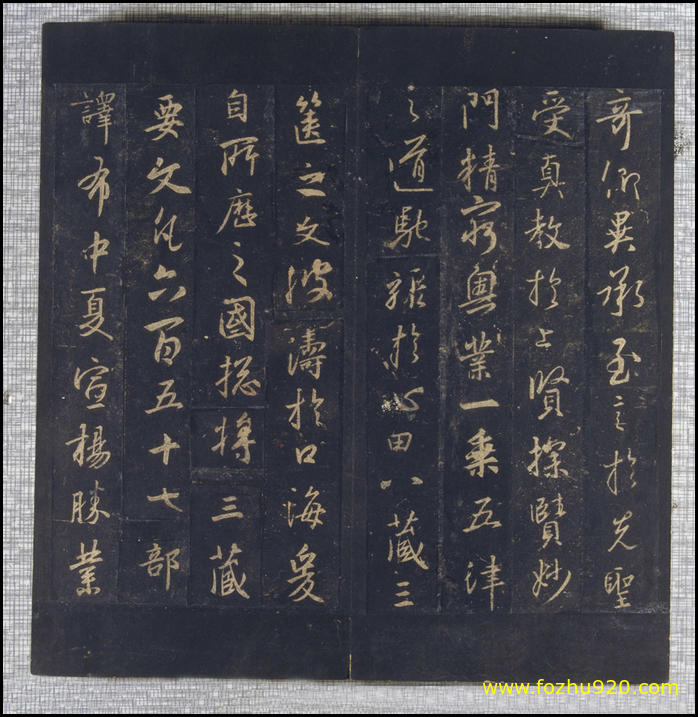 奇仰異承至言於先聖
受真教於上賢探賾妙
門精窮奧業一乘五律
之道馳驟於心田八藏三
篋之文波濤於口海爰
自所歷之國揔將三藏
要文凡六百五十七部
譯布中夏宣揚勝業
www.fozhu920.com